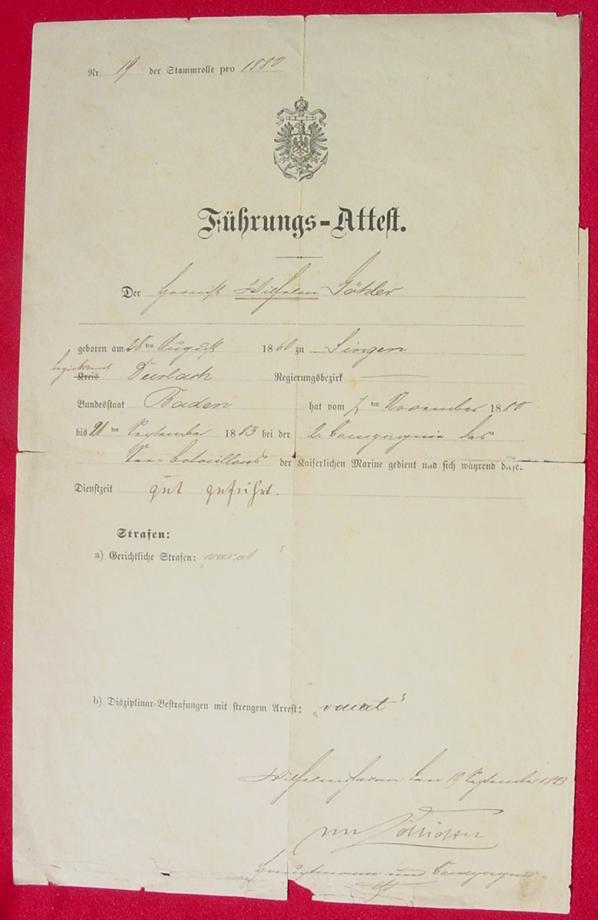 Nr. 19 der Stammrolle pro 1880
Führungs-Attest.
Der Hornist Wilhelm Göhler
geboren am 28ten August 1860 zu Singen
Kreis Durlach Regierungsbezirk —
Bundesstaat Baden hat vom 7ten November 1880
bis 21ten September 1883 bei der 2. Compagnie des
See-Bataillons der Kaiserlichen Marine gedient und sich während dies.
Dienstzeit gut geführt.
Strafen:
a) Gerichtliche Strafen: „vacat“
b) Disziplinar-Bestrafungen mit strengem Arrest: „vacat“
Wilhelmshaven den 19 September 1883
Hauptmann und Compagnie